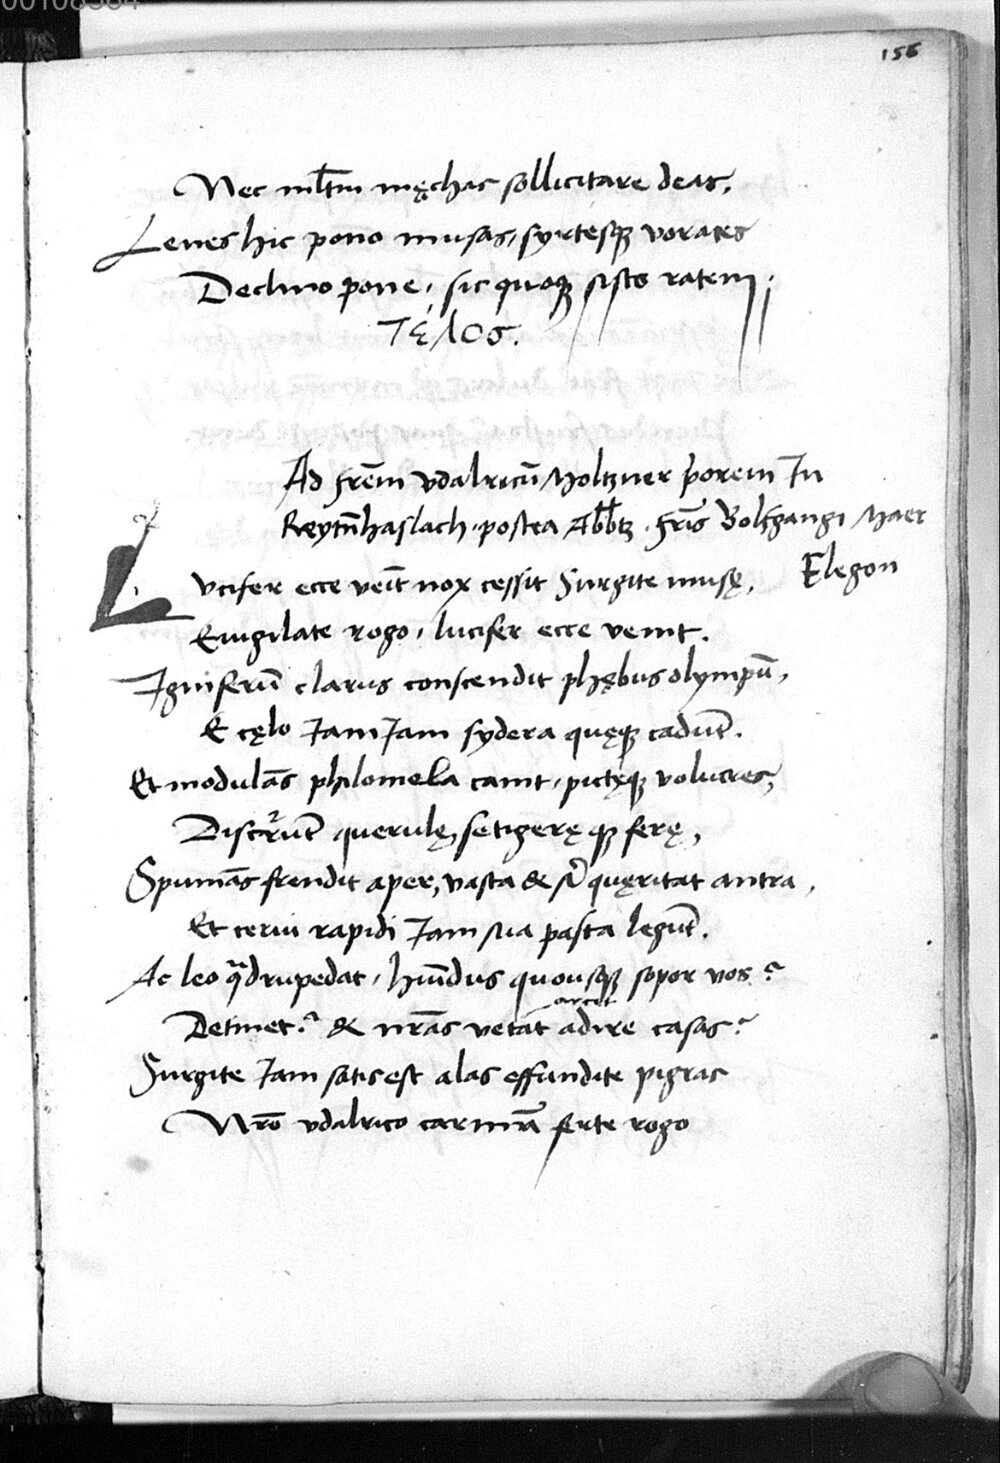 00108384
156
Nec ml̄tm męchas sollicitare deas,
Leues hic pono musas, syrtesqꝫ vorates
Declino pone, sic quoqꝫ sisto ratem.
Τέλος.
Ad frēm vdalricū Holtzner p̄orem In
Reytn̄haslach. postea Abb̄tz. fr̄is Bolfgangi Maer
Elegon
Lvcifer ecce veīt nox cessit Surgite musę,
Euigilate rogo, lucifer ecce venit.
Igniferū clarus conscendit phębus olympū,
E cęlo Iam Iam sydera quęqꝫ cadūt.
Et modulās philomela canit, pictęqꝫ volucres,
Discr̄ūt querulę, setigerę qꝫ ferę,
Spumās frendit aper, vasta & sī quęritat antra,
Et cerui rapidi Iam sua pasta legūt.
Ac leo qͣdrupedat, hūndus quousqꝫ sopor vos?
arcet
Detinet? & nr̄as vetat adire casas?
Surgite Iam satis est alas effundite pigras
Nr̄o vdalrico carmīa ferte rogo